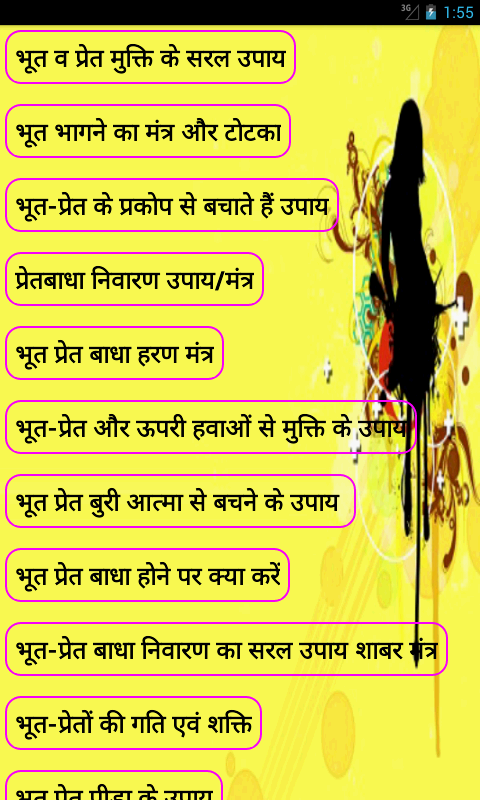 3G
1:55
भूत व प्रेत मुक्ति के सरल उपाय
भूत भागने का मंत्र और टोटका
भूत-प्रेत के प्रकोप से बचाते हैं उपाय
प्रेतबाधा निवारण उपाय/मंत्र
भूत प्रेत बाधा हरण मंत्र
भूत-प्रेत और ऊपरी हवाओं से मुक्ति के उपाय
भूत प्रेत बुरी आत्मा से बचने के उपाय
भूत प्रेत बाधा होने पर क्या करें
भूत-प्रेत बाधा निवारण का सरल उपाय शाबर मंत्र
भूत-प्रेतों की गति एवं शक्ति
भूत प्रेत पीड़ा के उपाय